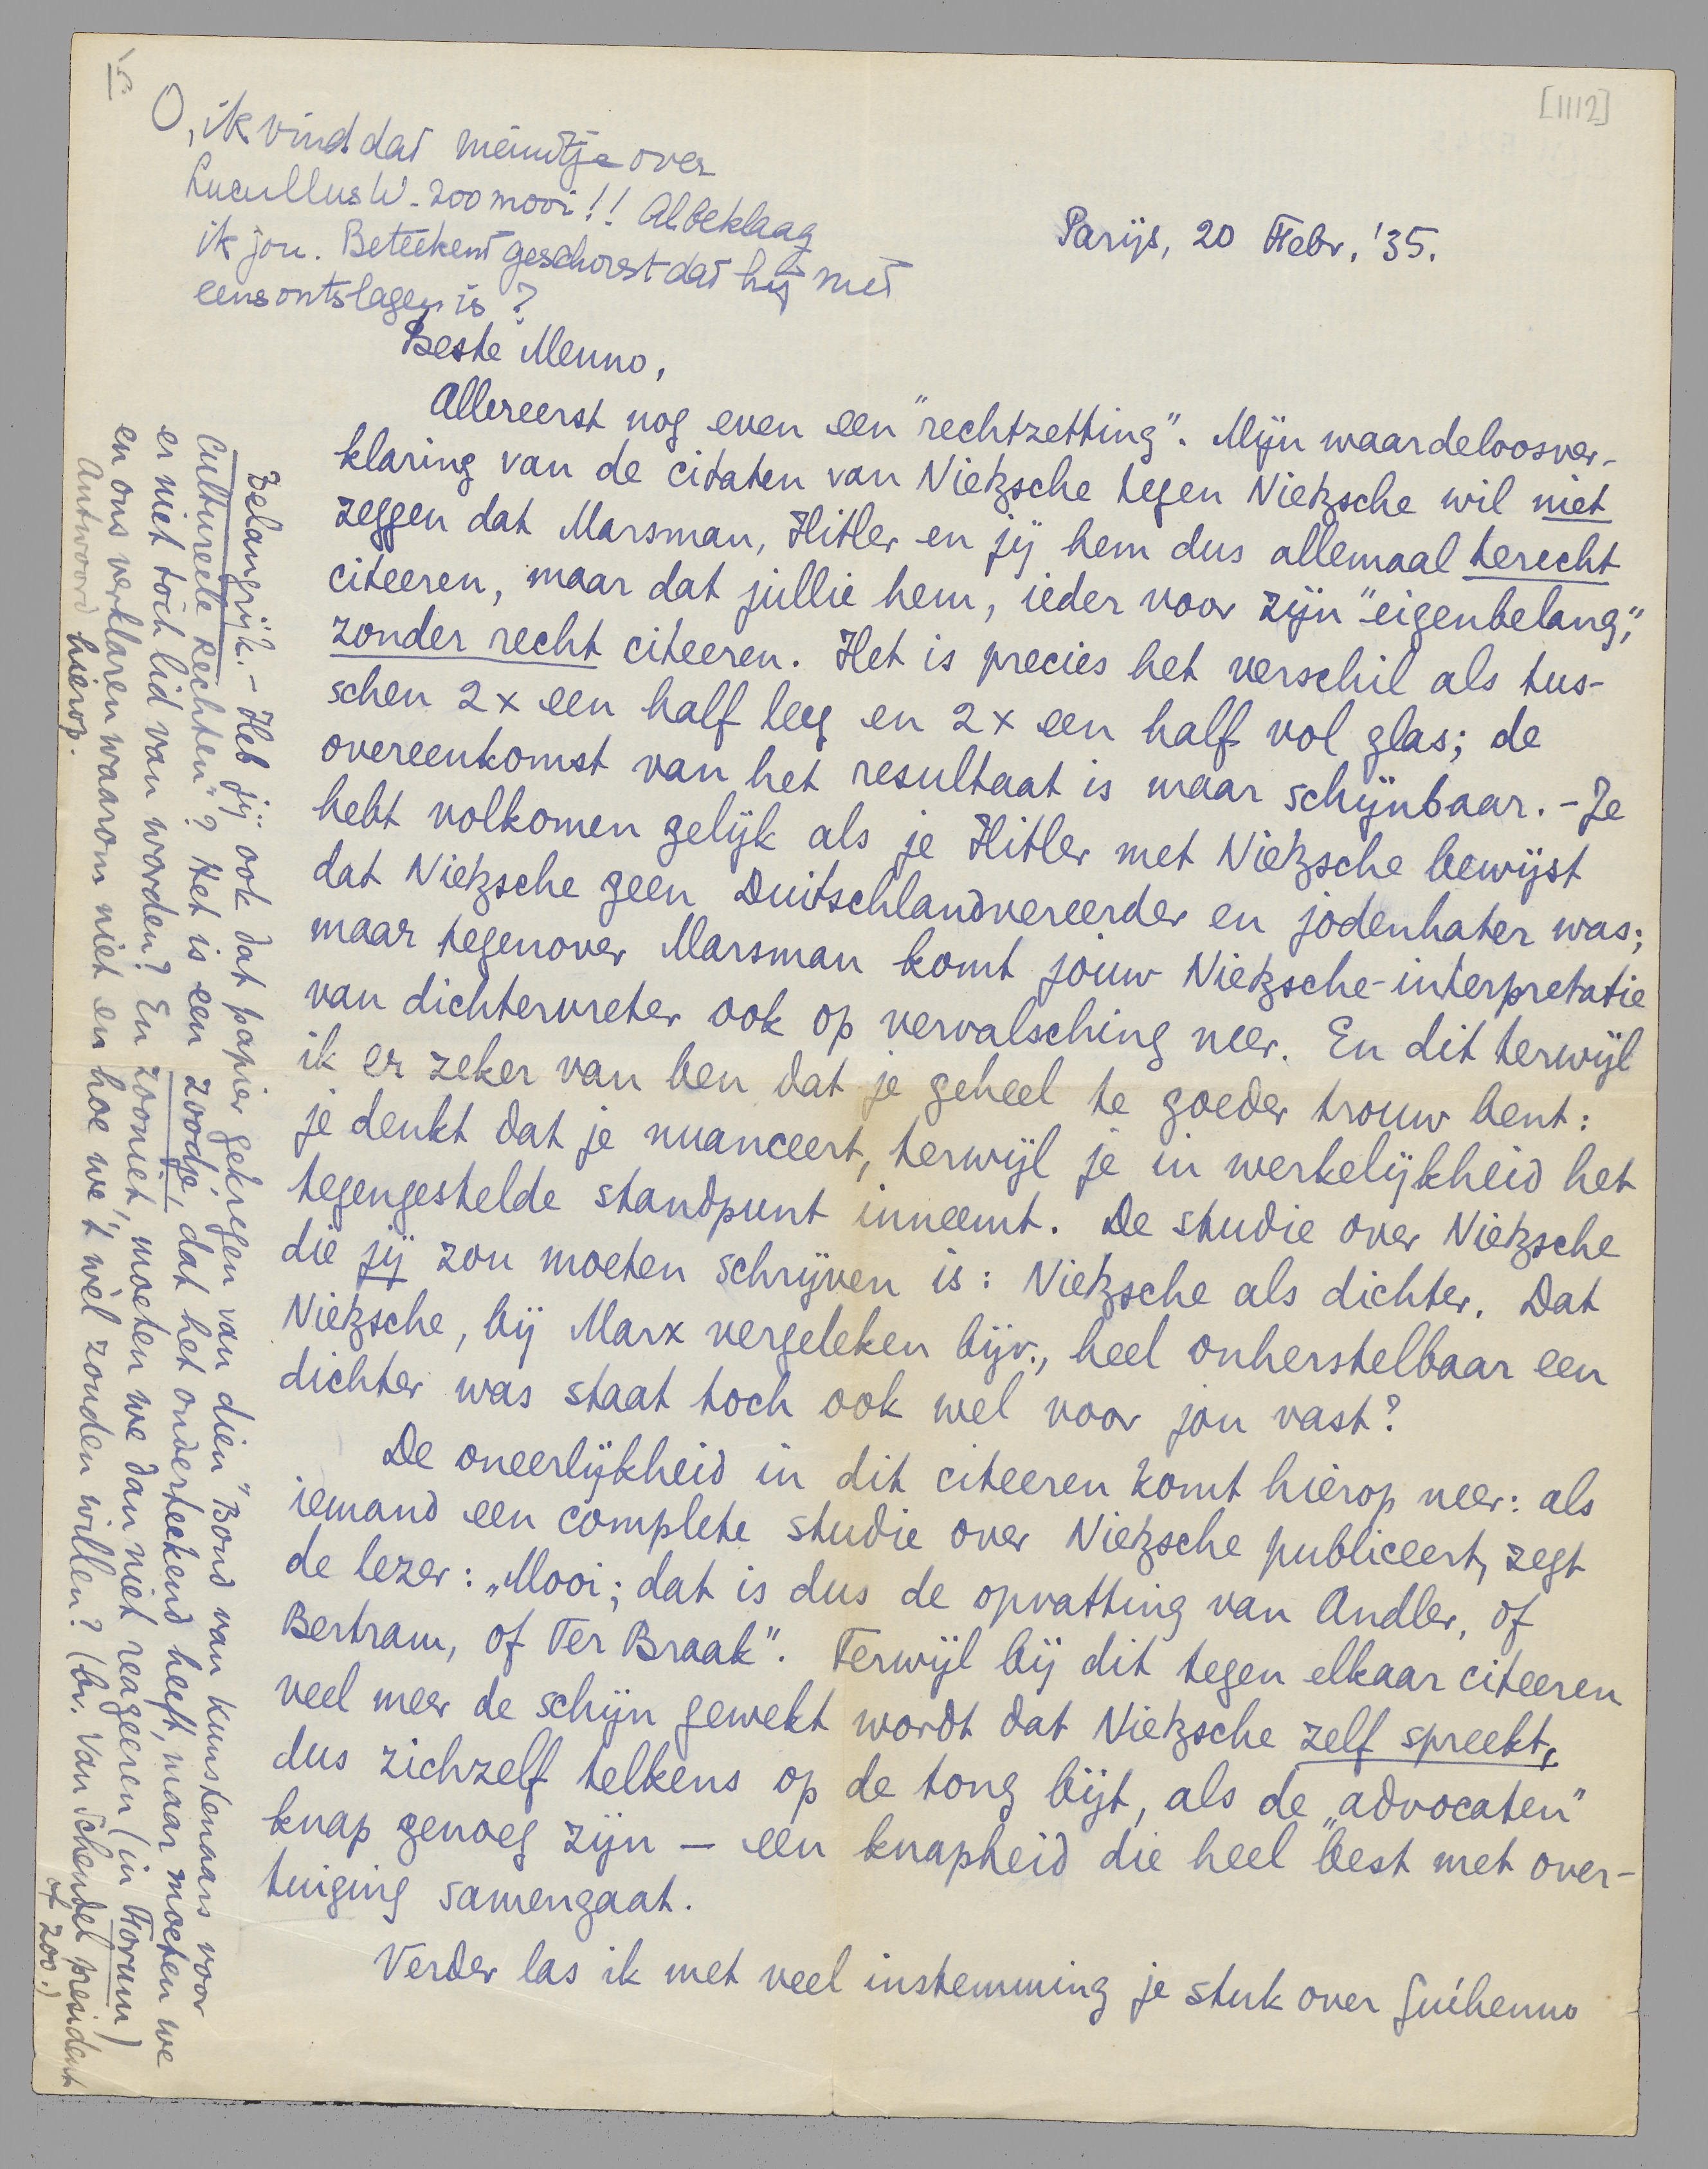 [1112]
O, ik vind dat meindtje over
Lucullus W. zoo mooi!! Al beklaag
ik jou. Beteekent geschorst dat hij niet
eens ontslagen is?
Parijs, 20 Febr. '35.
Beste Menno,
Allereerst nog even een "rechtzetting". Mijn waardeloosver-
klaring van de citaten van Nietzsche tegen Nietzsche wil niet
zeggen dat Marsman, Hitler en jij hem dus allemaal terecht
citeeren, maar dat jullie hem, ieder voor zijn "eigenbelang",
zonder recht citeeren. Het is precies het verschil als tus-
schen 2 x een half leeg en 2 x een half vol glas; de
overeenkomst van het resultaat is maar schijnbaar. - Je
hebt volkomen gelijk als je Hitler met Nietzsche bewijst
dat Nietzsche geen Duitschlandvereerder en jodenhater was;
maar tegenover Marsman komt jouw Nietzsche-interpretatie
van dichtervreter ook op vervalsching neer. En dit terwijl
ik er zeker van ben dat je geheel te goeder trouw bent:
je denkt dat je nuanceert, terwijl je in werkelijkheid het
tegengestelde standpunt inneemt. De studie over Nietzsche
die jij zou moeten schrijven is: Nietzsche als dichter. Dat
Nietzsche, bij Marx vergeleken bijv., heel onherstelbaar een
dichter was staat toch ook wel voor jou vast?
De oneerlijkheid in dit citeeren komt hierop neer: als
iemand een complete studie over Nietzsche publiceert, zegt
de lezer: „Mooi; dat is dus de opvatting van Andler, of
Bertram, of Ter Braak". Terwijl bij dit tegen elkaar citeeren
veel meer de schijn gewekt wordt dat Nietzsche zelf spreekt,
dus zichzelf telkens op de tong bijt, als de „advocaten"
knap genoeg zijn — een knapheid die heel best met over-
tuiging samengaat.
Verder las ik met veel instemming je stuk over Guéhenno
Belangrijk. - Heb jij ook dat papier gekregen van dien "Bond van Kunstenaars voor
Cultureele Rechten"? Het is een zoodje, dat het onderteekend heeft, maar moeten we
er niet toch lid van worden? En zooniet, moeten we dan niet reageeren (in Forum)
en ons verklaren waarom niet en hoe we 't wèl zouden willen? (bv. Van Schendel president
of zoo.)
Antwoord hierop.